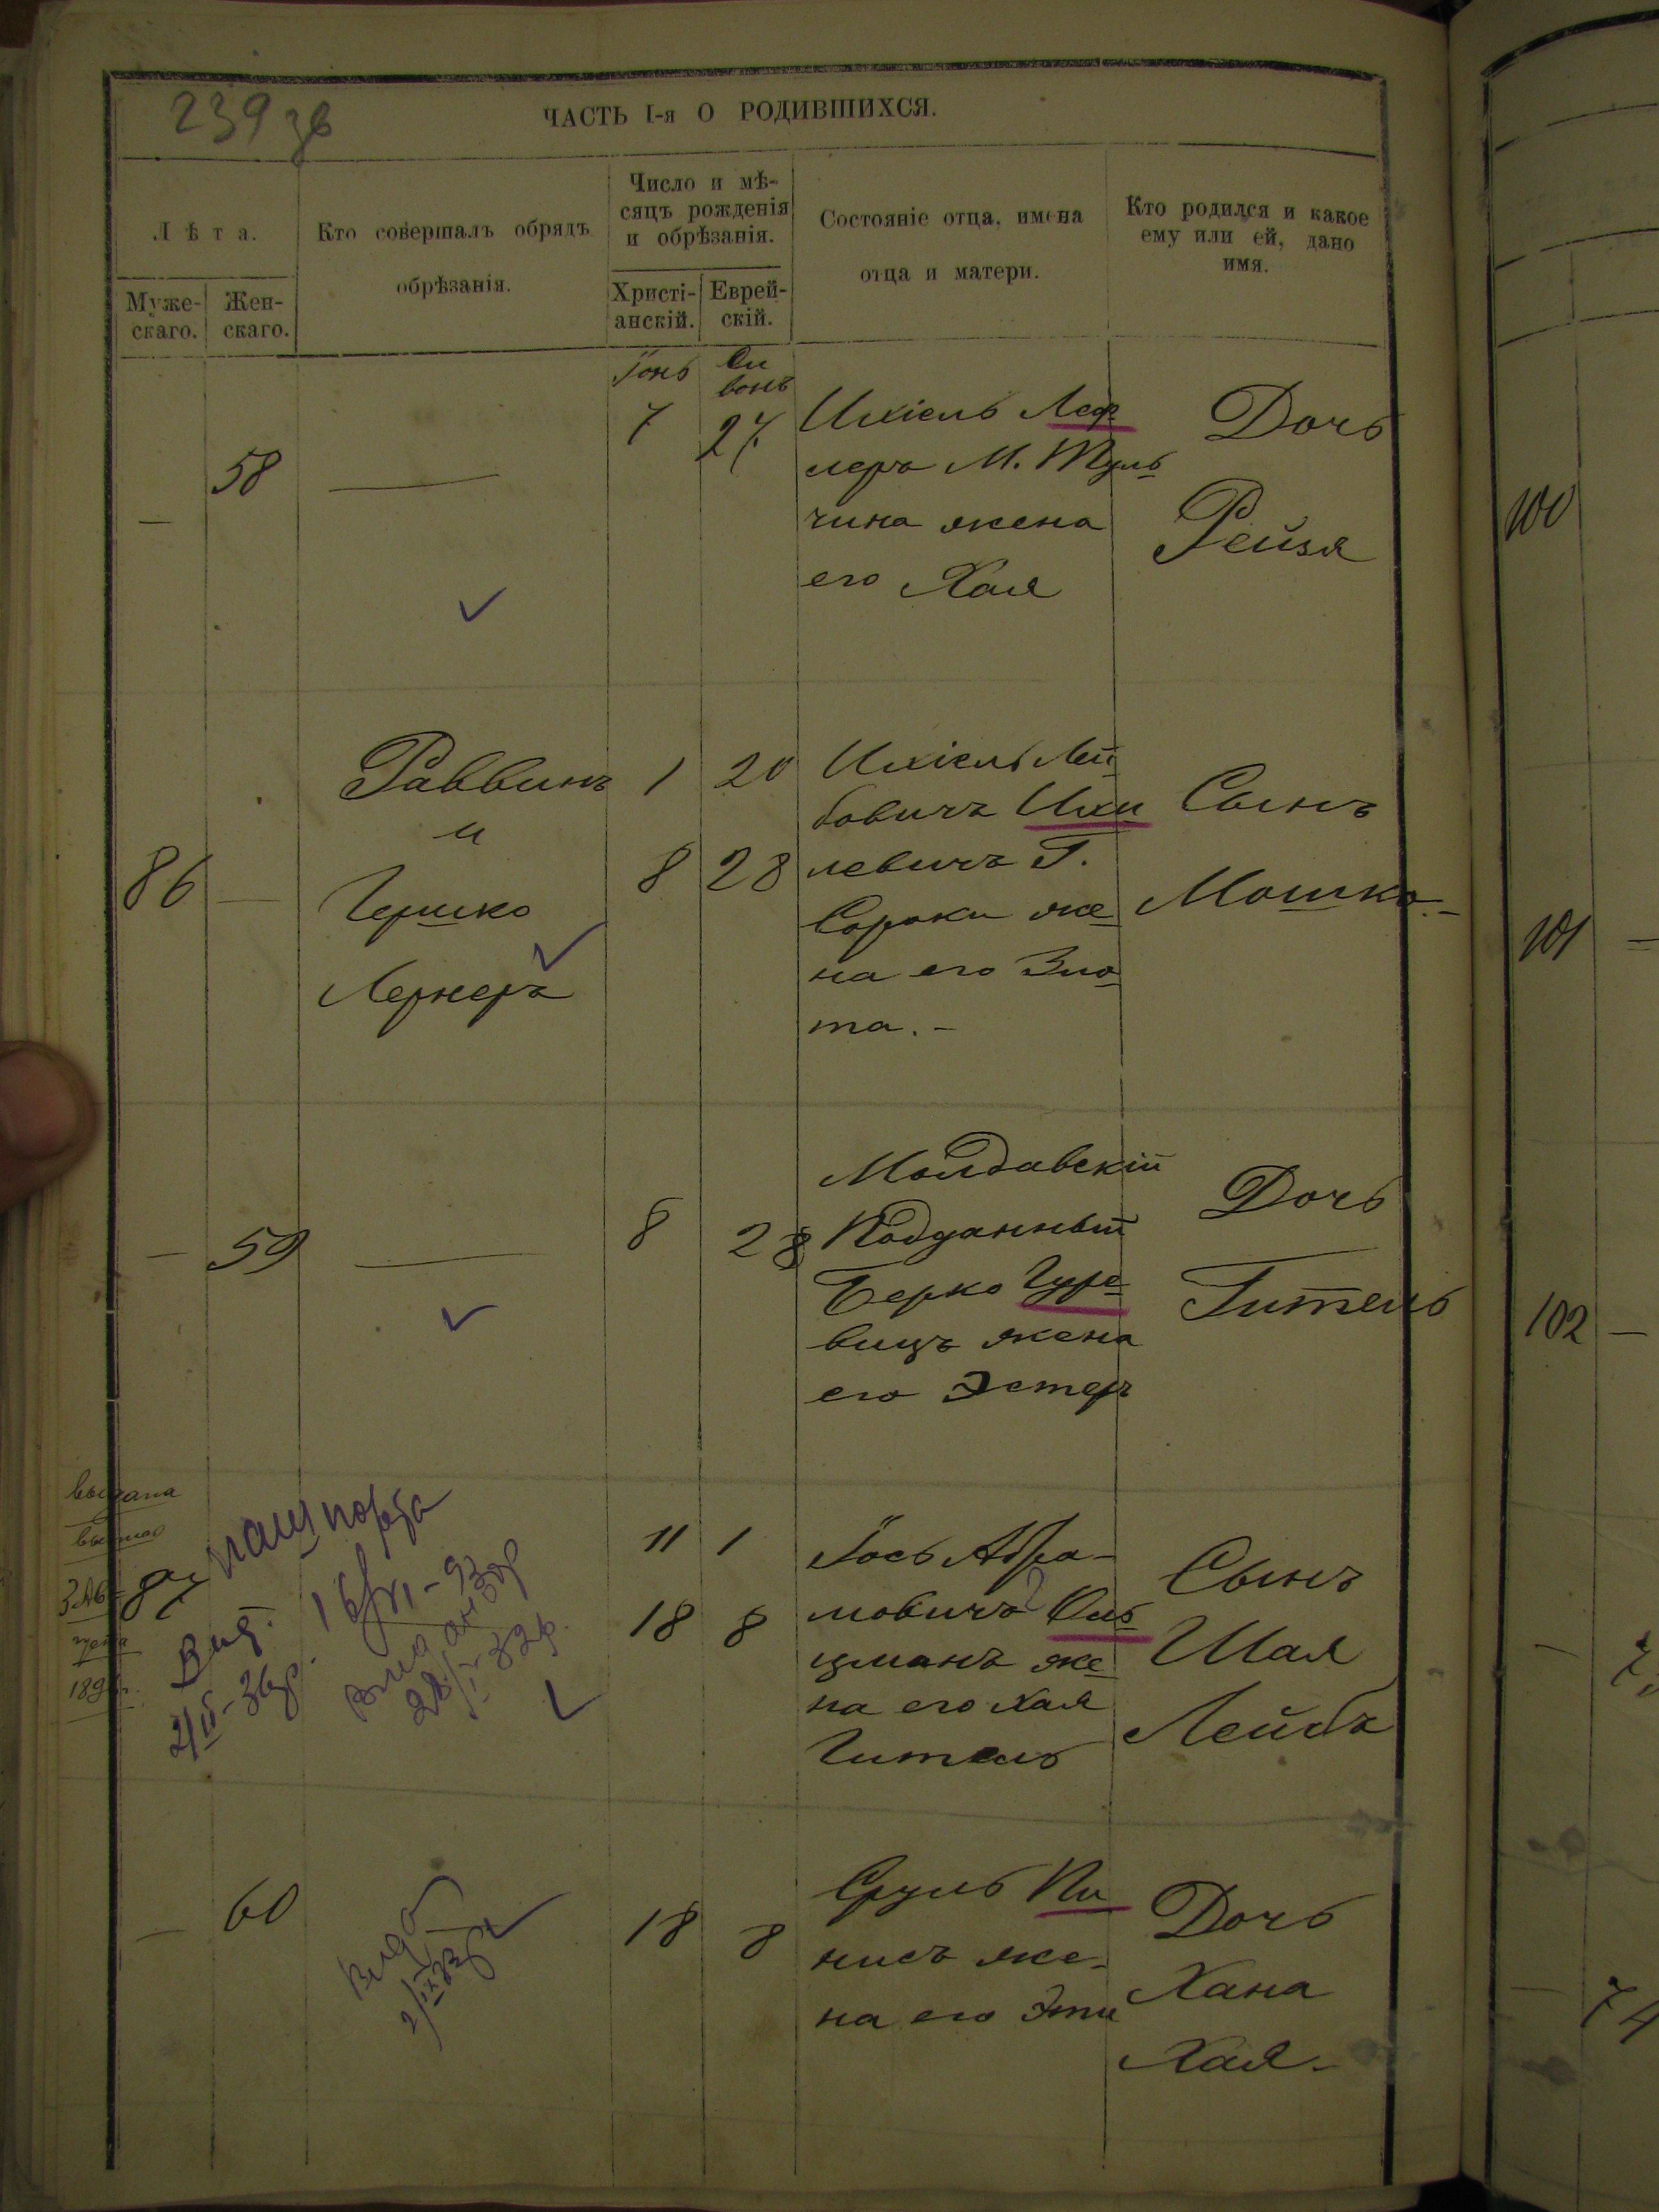 239 зв
ЧАСТЬ I-я О РОДИВШИХСЯ.
Лѣта.
Муже-
скаго.
Жен-
скаго.
Кто совершалъ обрядъ
обрѣзанія.
Число и мѣ-
сяцъ рожденія
и обрѣзанія.
Христі-
анскій.
Еврей-
скій.
Состояніе отца, имена
отца и матери.
Кто родился и какое
ему или ей, дано
имя.
Іюнь
Си
вонъ
—
58
7
27
Ихіель Леф
леръ М. Туль
чина жена
его Хая
Дочь
Рейзя
86
—
Раввинъ
и
Гершко
Лернеръ
1
20
8
28
Ихіель Лей
бовичъ Ихи
левичъ Г.
Сороки же
на его Зло
та.-
Сынъ
Мошко.-
—
59
8
28
Молдавскій
Подданный
Берко Гуре
вицъ жена
его Эстеръ
Дочь
Гитель
выдана
87
пашпорта
Вид.
11
1
18
8
Іось Абра-
мовичъ
цманъ же
на его Хая
Гитель
Сынъ
Шая
Лейбъ
—
60
18
8
Сруль Пи
нисъ же-
на его Эти
Дочь
Хана
Хая.-
100
101
102
74